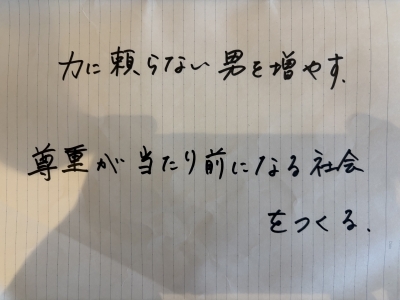 力に頼らない男を増やす.
尊重が当たり前になる社会
をつくる.